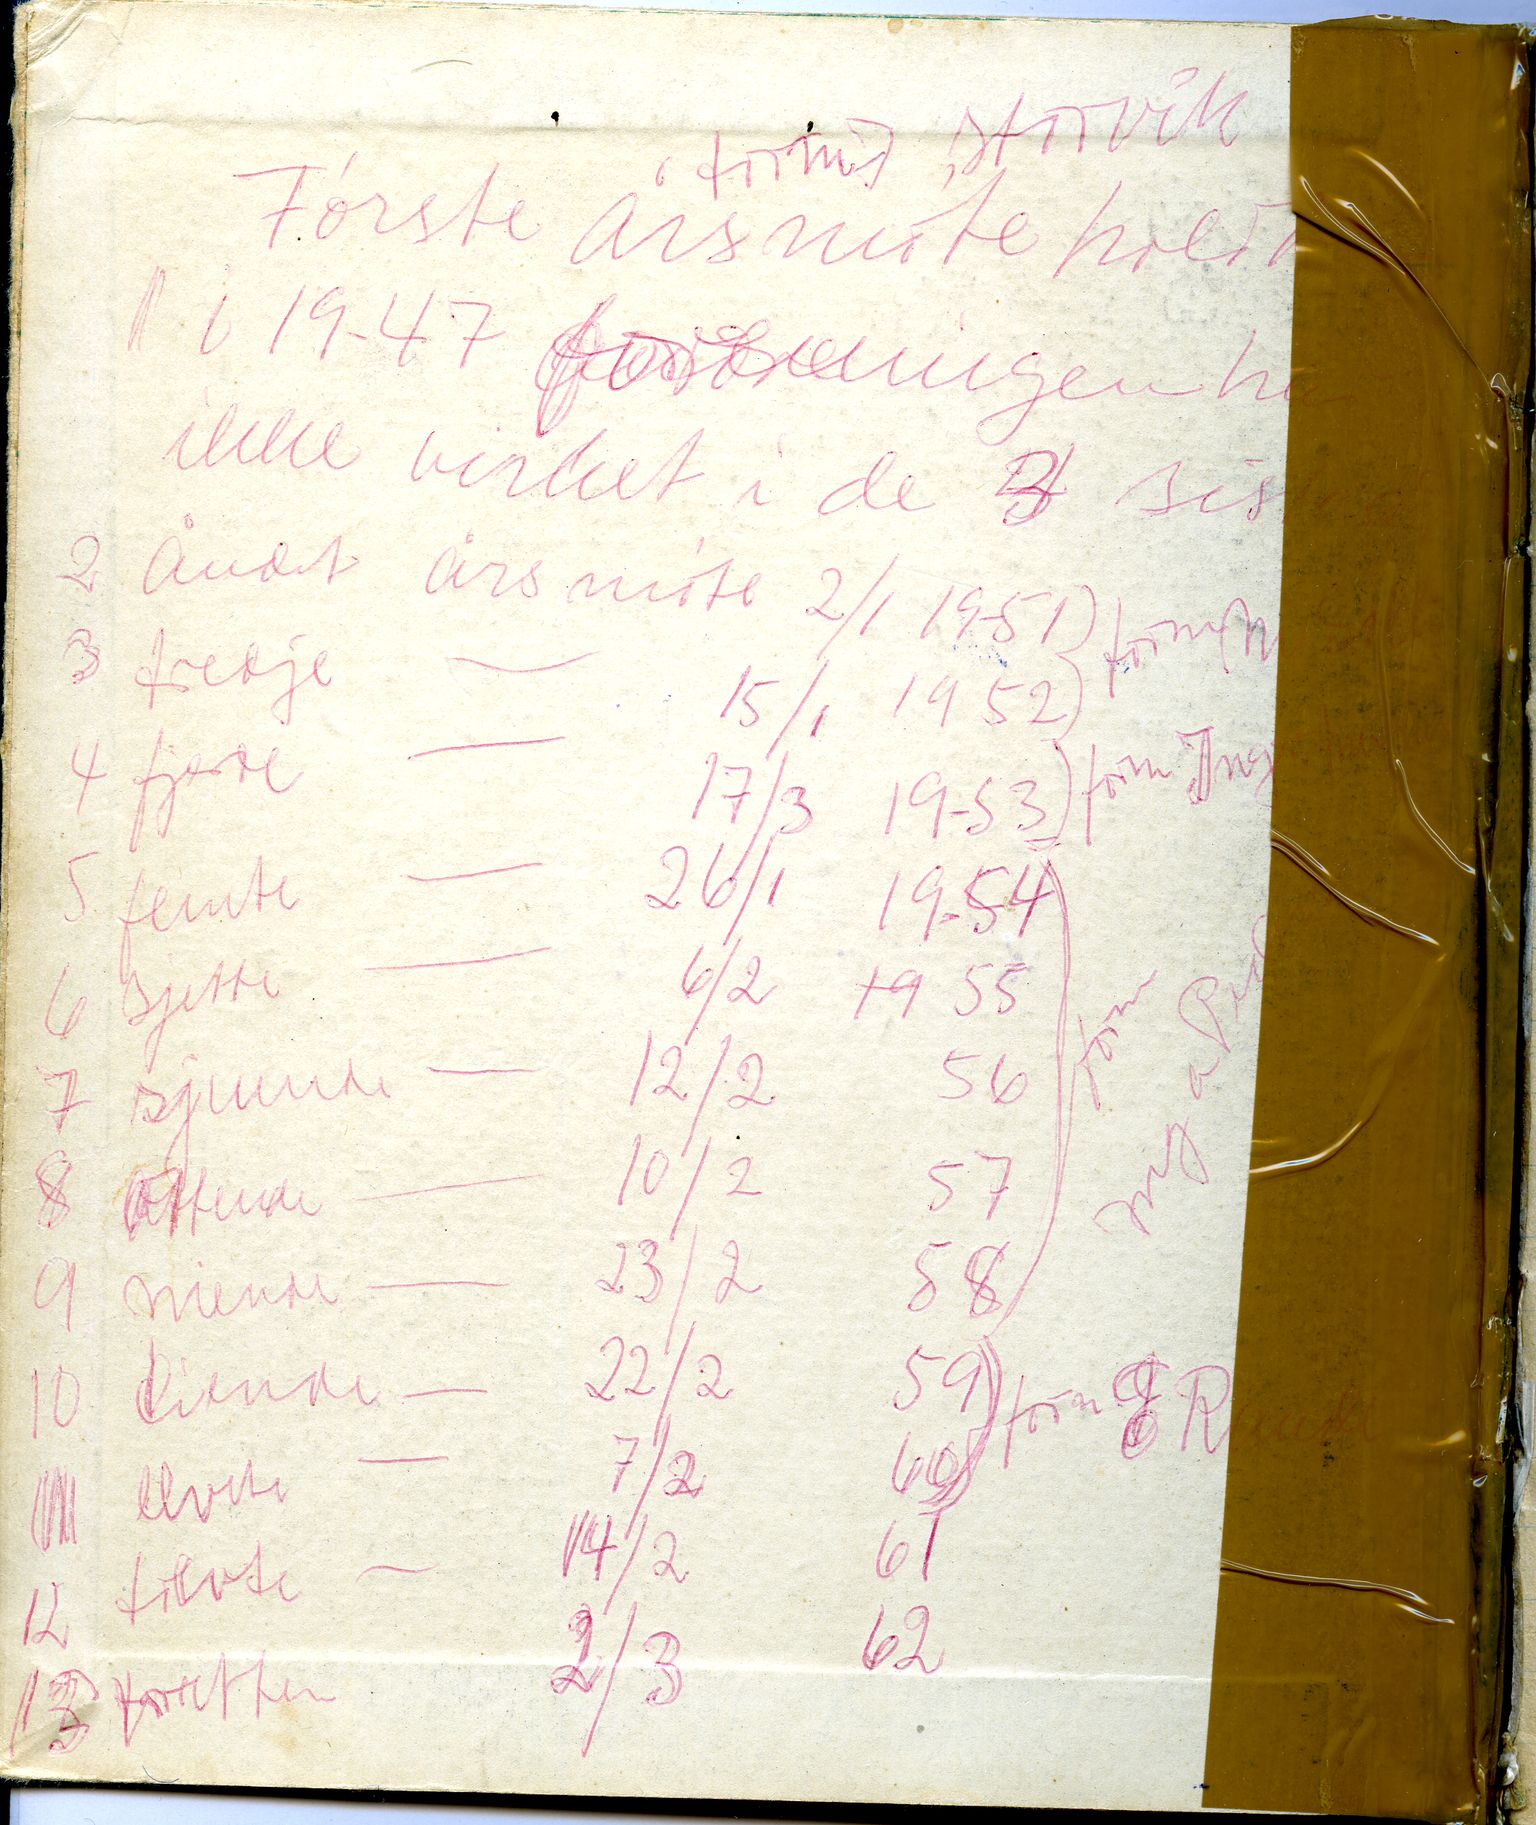 form Storvik
Første årsmöte holdt
1 i 19-47 foreningen ha
ikke virket i de 3 siste
2 Andt årsmöte 2/1 19-51 ) form
3 tredje — 15/1 19 52 )
4 fjerde — 17/3 19-53 ) form
5 femte — 26/1 19-54
6 sjette — 6/2 19 55 form
7 sjuende — 12/2 56
8 åttende — 10/2 57
9 niende — 23/2 58
10 tiende — 22/2 59 ) form R
11 elvte — 7/2 60
12 tolvte — 14/2 61
13 tretten 2/3 62